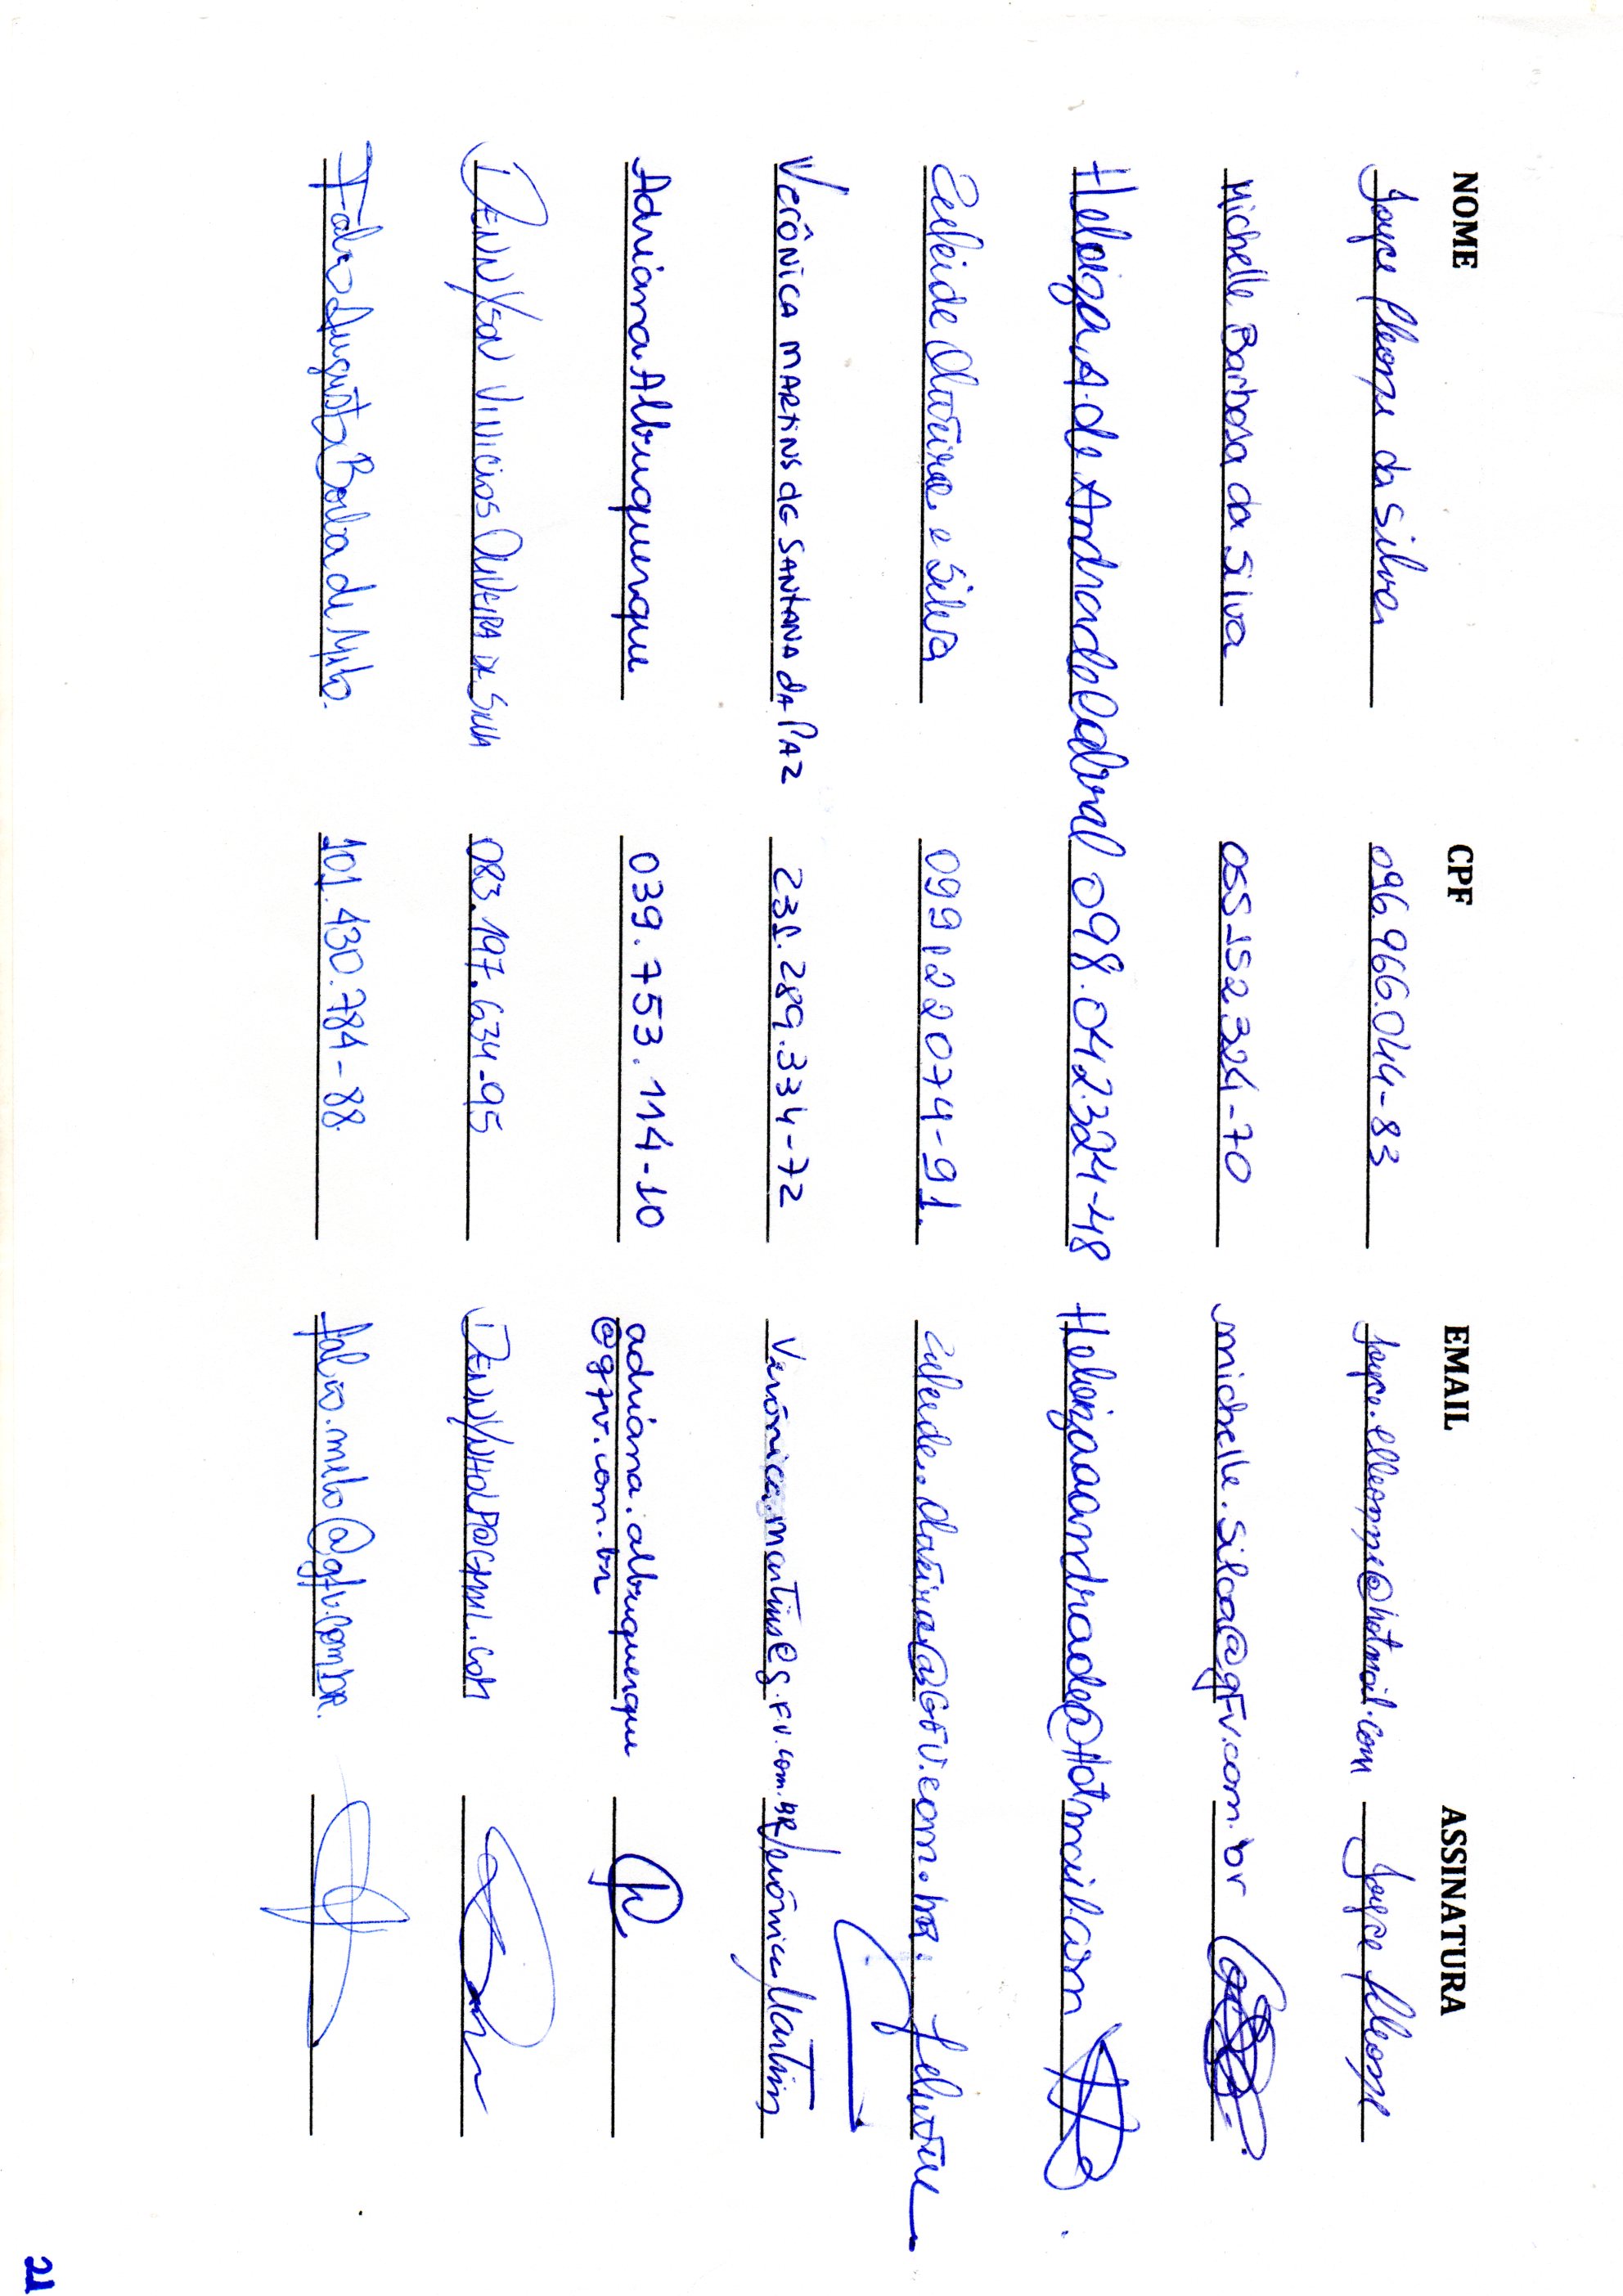 NOME CPF EMAIL ASSINATURA
Joyce Elleone da Silva 096.966.044-83 joyce.elleonne@hotmail.com Joyce Elleone
Michelle Barbosa da Silva 055-152.324-70 michelle.silva@gFv.com.br
Heloiza A. de Andrade Cabral 098.042.324-48 Heloizaaandrade@Hotmail.com
Oliveira e Silva 099.122074-91.
VERÔNICA MARTINS de SANTANA dA PAZ 231.289.334-72 Verônica.martins@g.F.V.com.BR Verônica Martins
Adriana Albuquerque 039.753.114-10 adriana.albuquerque
@gfv.com.br
DENNYSON VINICIOS OLIVEIRA DA SILVA 083.197.634-95
Fabio Augusto Borba de Melo. 101.430.784-88. fabio.melo@gfv.com.br.
21